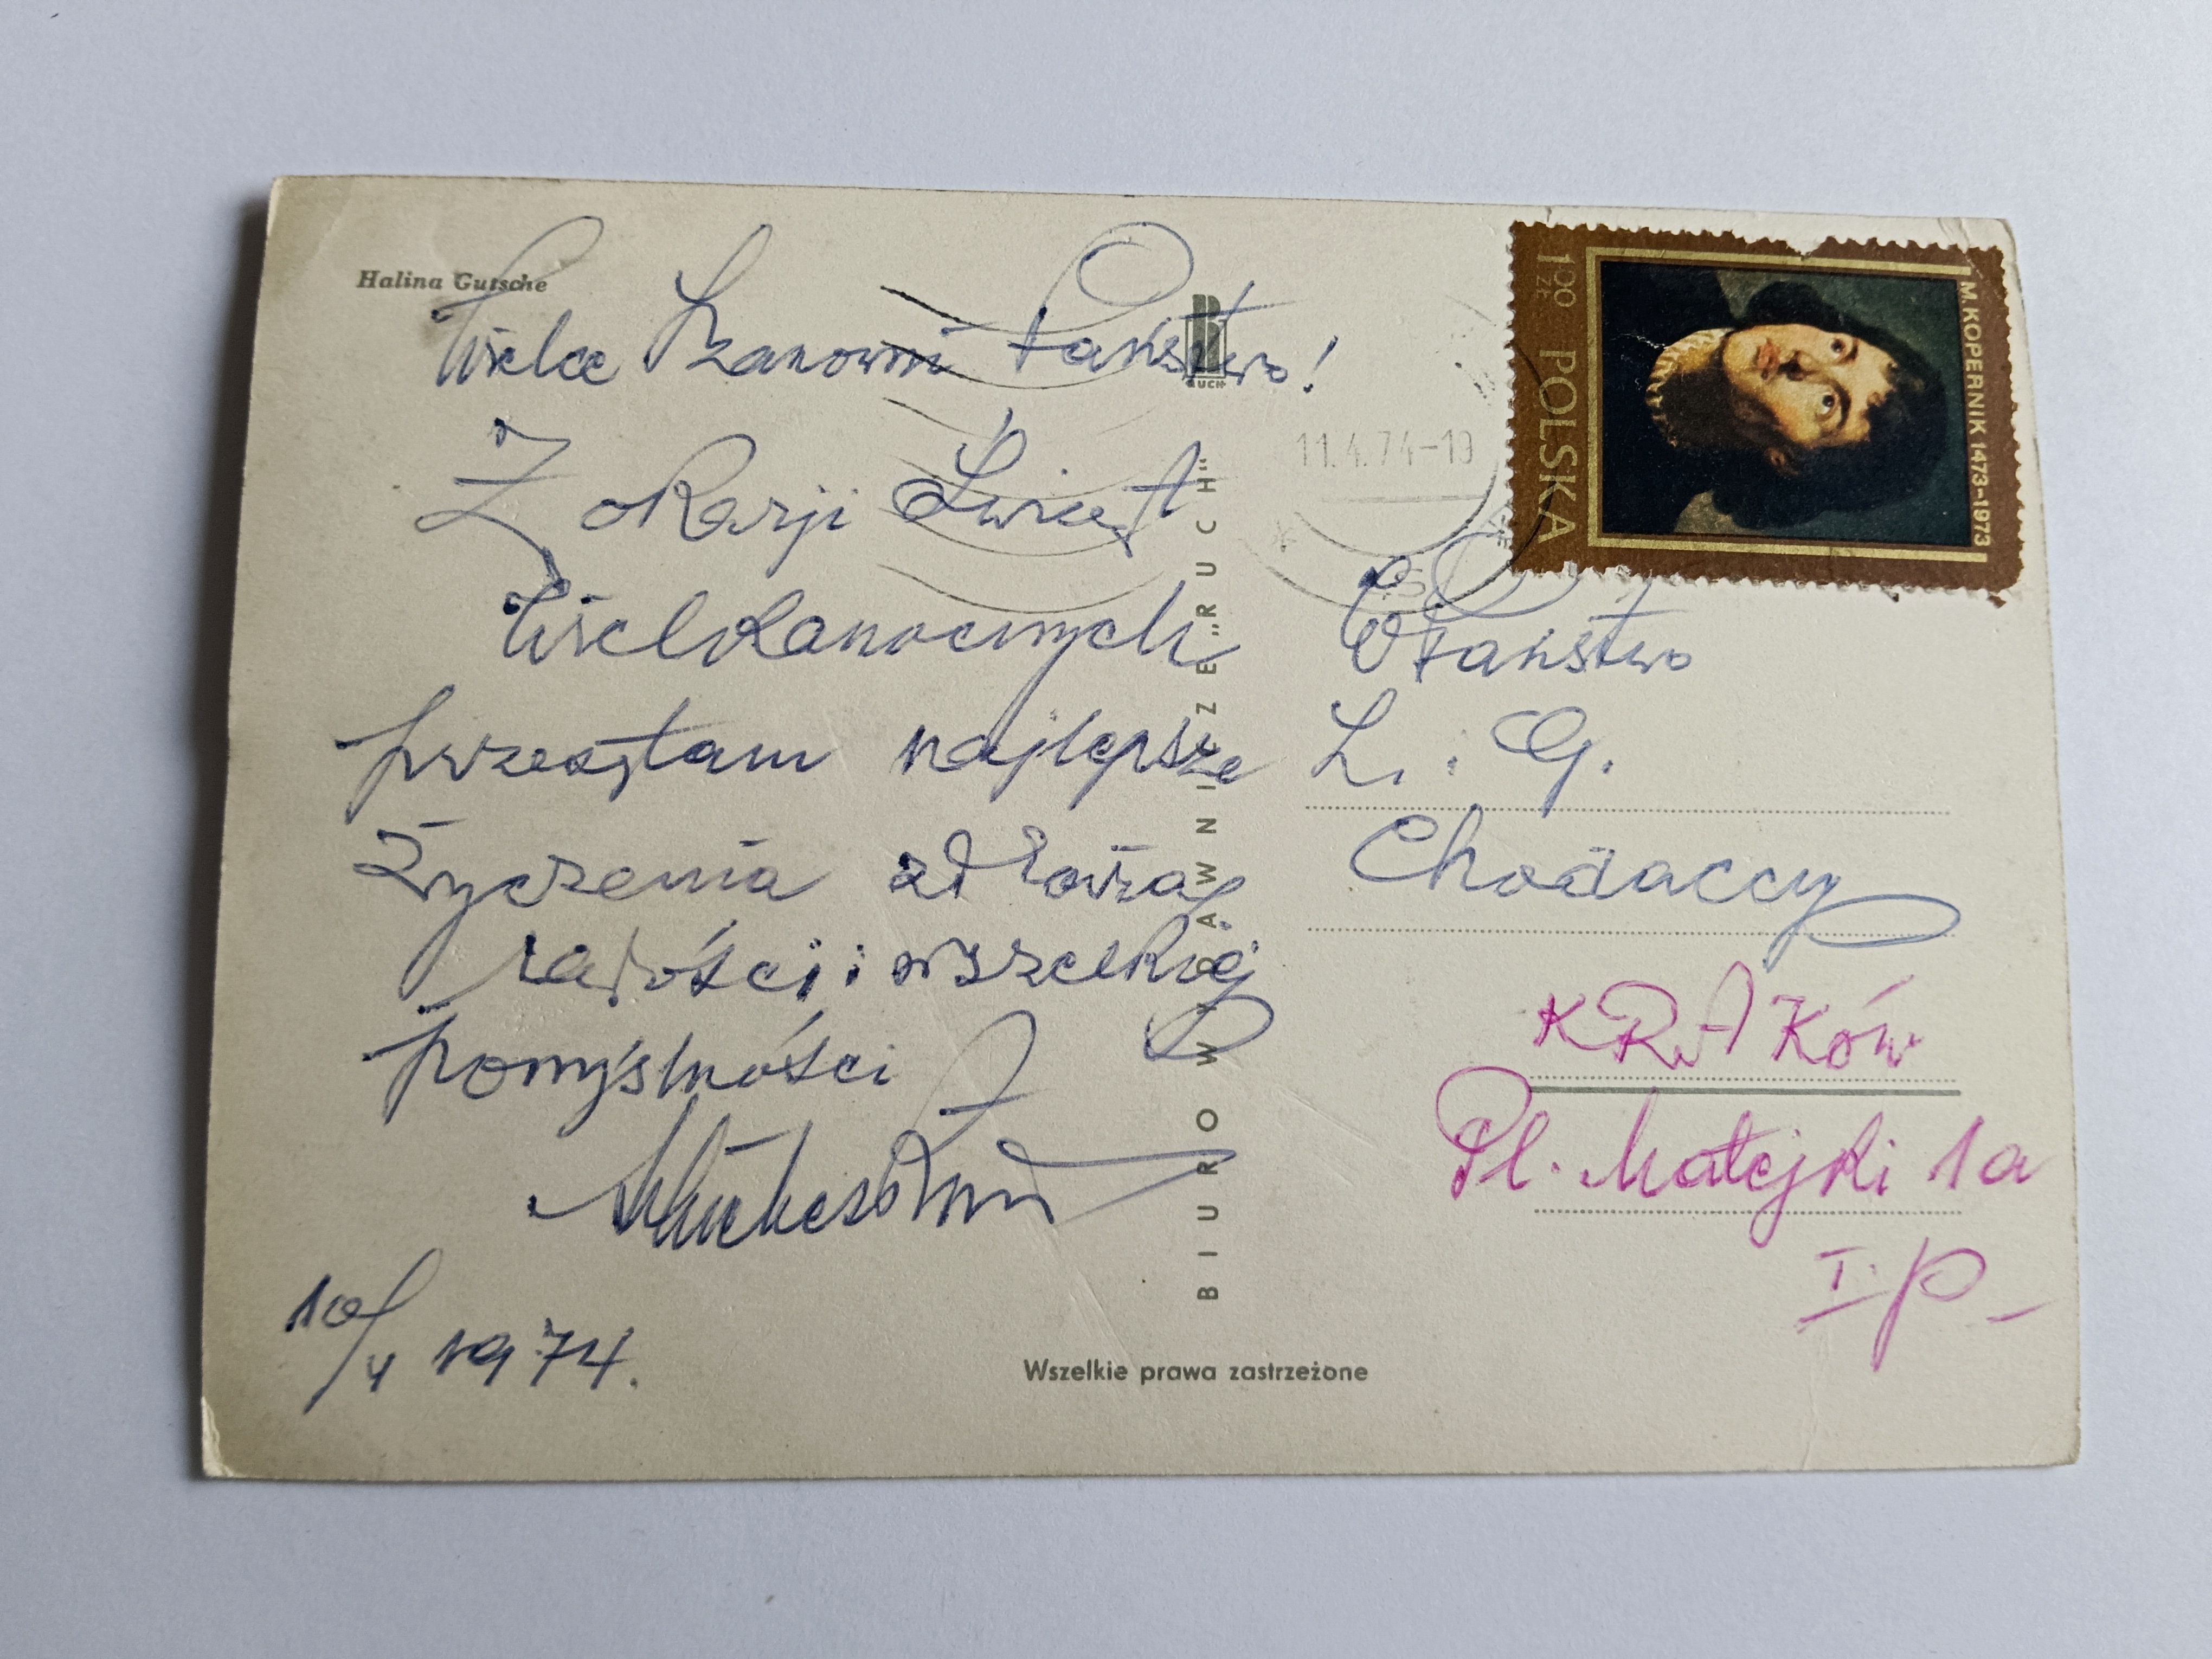 Halina Gutsche
Wielce Szanowni Państwo!
Z okazji Świąt
Wielkanocnych
przesyłam najlepsze
życzenia zdrowia,
radości i wszelkiej
pomyślności
10/4 1974.
RUCH
BIURO WYDAWNICZE „RUCH"
Wszelkie prawa zastrzeżone
11.4.74-19
100 ZŁ POLSKA
M. KOPERNIK 1473-1973
Państwo
L. G.
Chodaccy
KRAKów
Pl. Matejki 1a
I p